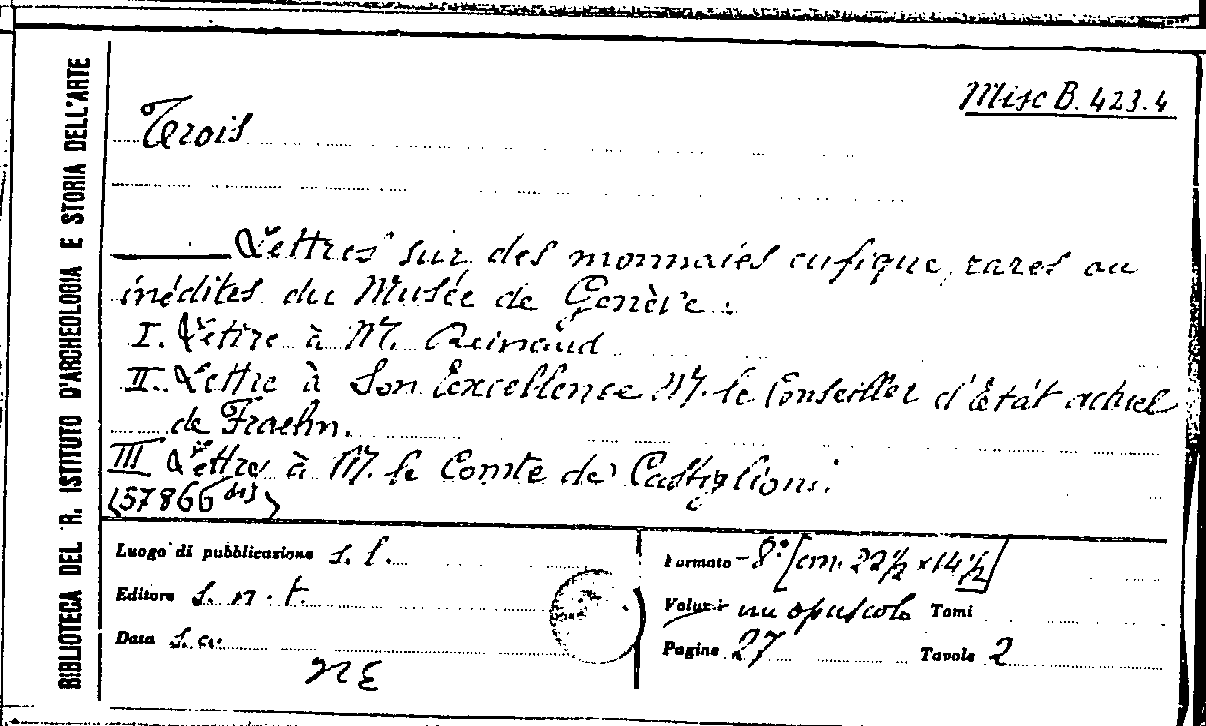 BIBLIOTECA DEL R. ISTITUTO D'ARCHEOLOGIA E STORIA DELL'ARTE
Misc B. 423.4
Trois
Lettres sur des monnaies cufique, rares ou
inédites du Musée de Genève.
I. Lettre à M. Reinaud
II. Lettre à Son Excellence M. le Conseiller d'État actuel
de Fraehn.
III Lettre à M. le Comte de Castiglioni.
(57866 bis)
Luogo di pubblicazione s. l.
Formato 8° [cm. 22½ x 14½]
Editore s. n. t.
Volumi un opuscolo Tomi
Data s. a.
Pagine 27 Tavole 2